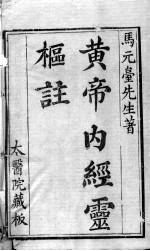 馬元臺先生著
黄帝內經靈
樞註
太醫院藏板